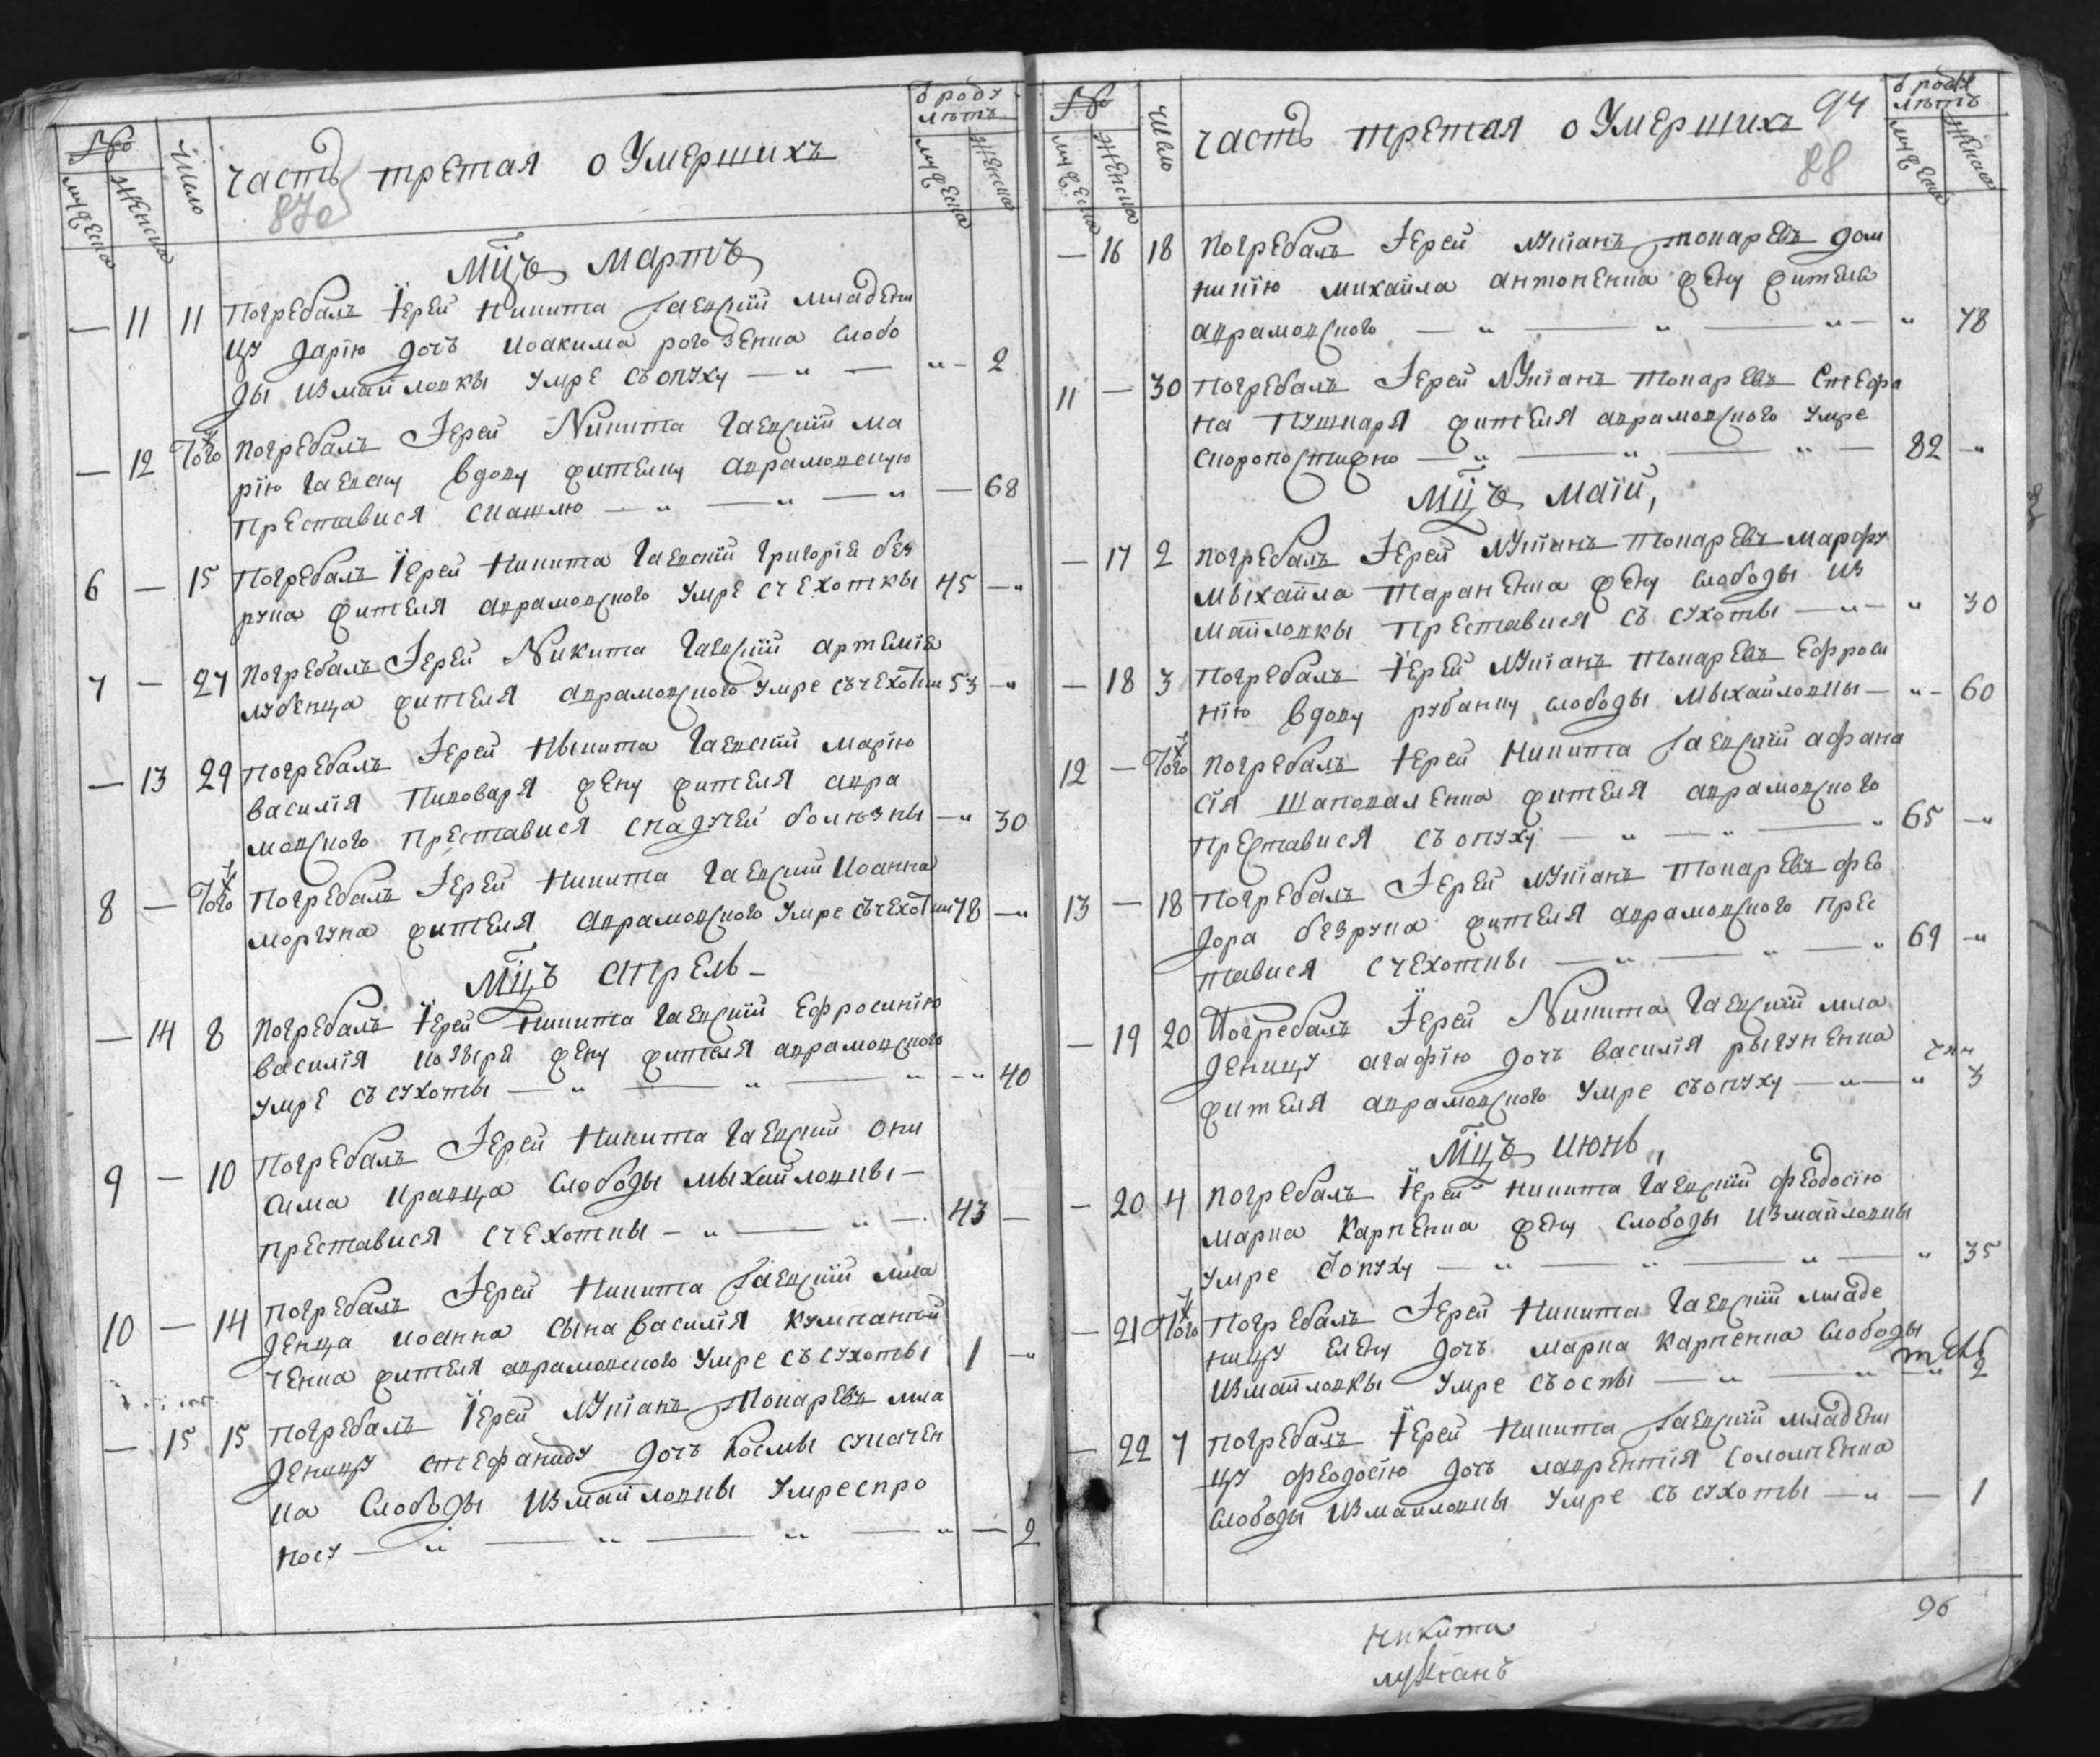 №
мужеска
женска
Число
Часть третая о Умершихъ
87о
в роду
лѣтъ
мужеска
женска
Мцъ Мартъ
— 11 11 Погребалъ Іерей Никита Гаевскій младени
цу Дарію дочь Иоакима рогозенка слобо
ды Измайловкы умре съ опуху — „ — „ — 2
— 12 Того Погребалъ Іерей Никита Гаевскій Ма
рію Гаевску вдову жителку аврамовскую
преставися скашлю — „ — „ — „ — 68
6 — 15 Погребалъ Іерей Никита Гаевскій Григорія без
рука жителя аврамовского умре счехоткы 45 — „
7 — 27 Погребалъ Іерей Никита Гаевскій Артемія
лубенца жителя аврамовского умре съчехотки 53 — „
— 13 29 Погребалъ Іерей Никита Гаевскій Марію
Василія Пивоваря жену жителя авра
мовского преставися спадучей болѣзны — „ 30
8 — Того Погребалъ Іерей Никита Гаевскій Иоанна
моргуна жителя Аврамовского умре съчехотки 78 — „
Мцъ Апрель
— 14 8 Погребалъ Іерей Никита Гаевскій Ефросинію
Василія козыря жену жителя аврамовского
умре съ сухоты — „ — „ — „ — „ 40
9 — 10 Погребалъ Іерей Никита Гаевскій Они
сима Кравца Слободы Мыхайловкы —
преставися счехоткы — „ — „ — 43 —
10 — 14 Погребалъ Іерей Никита Гаевскій мла
денца Иоанна сына Василія Кумпаній
ченка жителя аврамовского умре съ сухоты 1 — „
— 15 15 Погребалъ Іерей Лукіанъ Токаревъ мла
деницу Стефаниду дочь Космы сукачен
ка Слободы Измайловкы Умре спро
носу — „ — „ — „ — „ — 2
№
мужеска
женска
Число
Часть третая о Умершихъ
94
88
в роду
лѣтъ
мужеска
женска
— 16 18 Погребалъ Іерей Лукіанъ Токаревъ дом
никію Михайла Антоненка жену жителя
аврамовского — „ — „ — „ — „ 78
11 — 30 Погребалъ Іерей Лукіанъ Токаревъ Стефа
на Пушкаря жителя аврамовского умре
скоропостижно — „ — „ — „ — 82 — „
Мцъ Маій,
— 17 2 Погребалъ Іерей Лукіанъ Токаревъ Марфу
Мыхайла Тараненка жену слободы Из
майловкы преставися съ сухоты — „ — „ 30
— 18 3 Погребалъ Іерей Лукіанъ Токаревъ Ефроси
нію вдову рубанку слободы Мыхайловкы — „ — 60
12 — Того Погребалъ Іерей Никита Гаевскій Афана
сія Шаповаленка жителя аврамовского
преставися съ опуху — „ — „ — „ 65 — „
13 — 18 Погребалъ Іерей Лукіанъ Токаревъ Фео
дора безрука жителя аврамовского прес
тавися счехоткы — „ — „ — „ 69 — „
— 19 20 Погребалъ Іерей Никита Гаевскій мла
деницу Агафію дочь Василія рыгуненка
жителя аврамовского умре съопуху — „ — „ 3
Мцъ Июнь,
— 20 4 Погребалъ Іерей Никита Гаевскій Феодосію
Марка Карпенка жену Слободы Измайловкы
умре сопуху — „ — „ — „ — „ 35
— 21 Того Погребалъ Іерей Никита Гаевскій младе
ницу Елену дочь Марка Карпенка Слободы
Измайловкы умре съ оспы — „ — „ — „ 2
— 22 7 Погребалъ Іерей Никита Гаевскій младени
цу Феодосію дочь Лаврентія Соломченка
Слободы Измайловкы умре съ сухоты — „ — 1
96
Никита
лукіанъ